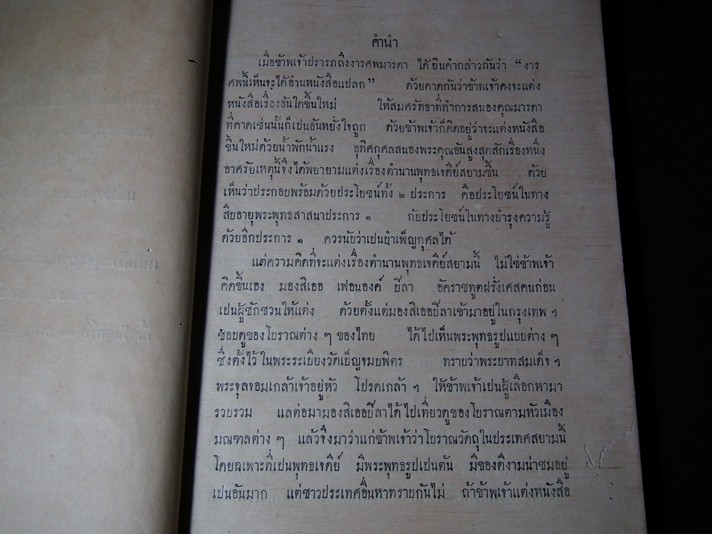 คำนำ
เมื่อข้าพเจ้าปรารภถึงงารศพมารดา ได้ยินคำกล่าวกันว่า “งาร
ศพนี้เห็นจะได้อ่านหนังสือแปลก” ด้วยคาดกันว่าข้าพเจ้าคงจะแต่ง
หนังสือเรื่องอันใดขึ้นใหม่ ให้สมศรัทธาที่ทำการสนองคุณมารดา
ที่คาดเช่นนั้นก็เปนอันหยั่งใจถูก ด้วยข้าพเจ้าก็คิดอยู่ว่าจะแต่งหนังสือ
ขึ้นใหม่ด้วยน้ำพักน้ำแรง อุทิศกุศลสนองพระคุณอันสูงสุดสักเรื่องหนึ่ง
อาศรัยเหตุนี้จึงได้พยายามแต่งเรื่องตำนานพุทธเจดีย์สยามขึ้น ด้วย
เห็นว่าประกอบพร้อมด้วยประโยชน์ทั้ง ๒ ประการ คือประโยชน์ในทาง
สืบอายุพระพุทธสาสนาประการ ๑ กับประโยชน์ในทางบำรุงความรู้
ด้วยอีกประการ ๑ ควรนับว่าเปนบำเพ็ญกุศลได้
แต่ความคิดที่จะแต่งเรื่องตำนานพุทธเจดีย์สยามนี้ ไม่ใช่ข้าพเจ้า
คิดขึ้นเอง มองสิเออ เฟอนองค์ ปีลา อัครราชทูตฝรั่งเศสคนก่อน
เปนผู้ชักชวนให้แต่ง ด้วยตั้งแต่มองสิเออปีลาเข้ามาอยู่ในกรุงเทพ ฯ
ชอบดูของโบราณต่าง ๆ ของไทย ได้ไปเห็นพระพุทธรูปแบบต่าง ๆ
ซึ่งตั้งไว้ในพระระเบียงวัดเบ็ญจมบพิตร ทราบว่าพระบาทสมเด็จ ฯ
พระจุลจอมเกล้าเจ้าอยู่หัว โปรดเกล้า ฯ ให้ข้าพเจ้าเปนผู้เลือกหามา
รวบรวม แลต่อมามองสิเออปีลาได้ไปเที่ยวดูของโบราณตามหัวเมือง
มณฑลต่าง ๆ แล้วจึงมาว่าแก่ข้าพเจ้าว่าโบราณวัตถุในประเทศสยามนี้
โดยฉะเพาะที่เปนพุทธเจดีย์ มีพระพุทธรูปเปนต้น มีของดีงามน่าชมอยู่
เปนอันมาก แต่ชาวประเทศอื่นหาทราบกันไม่ ถ้าข้าพเจ้าแต่งหนังสือ